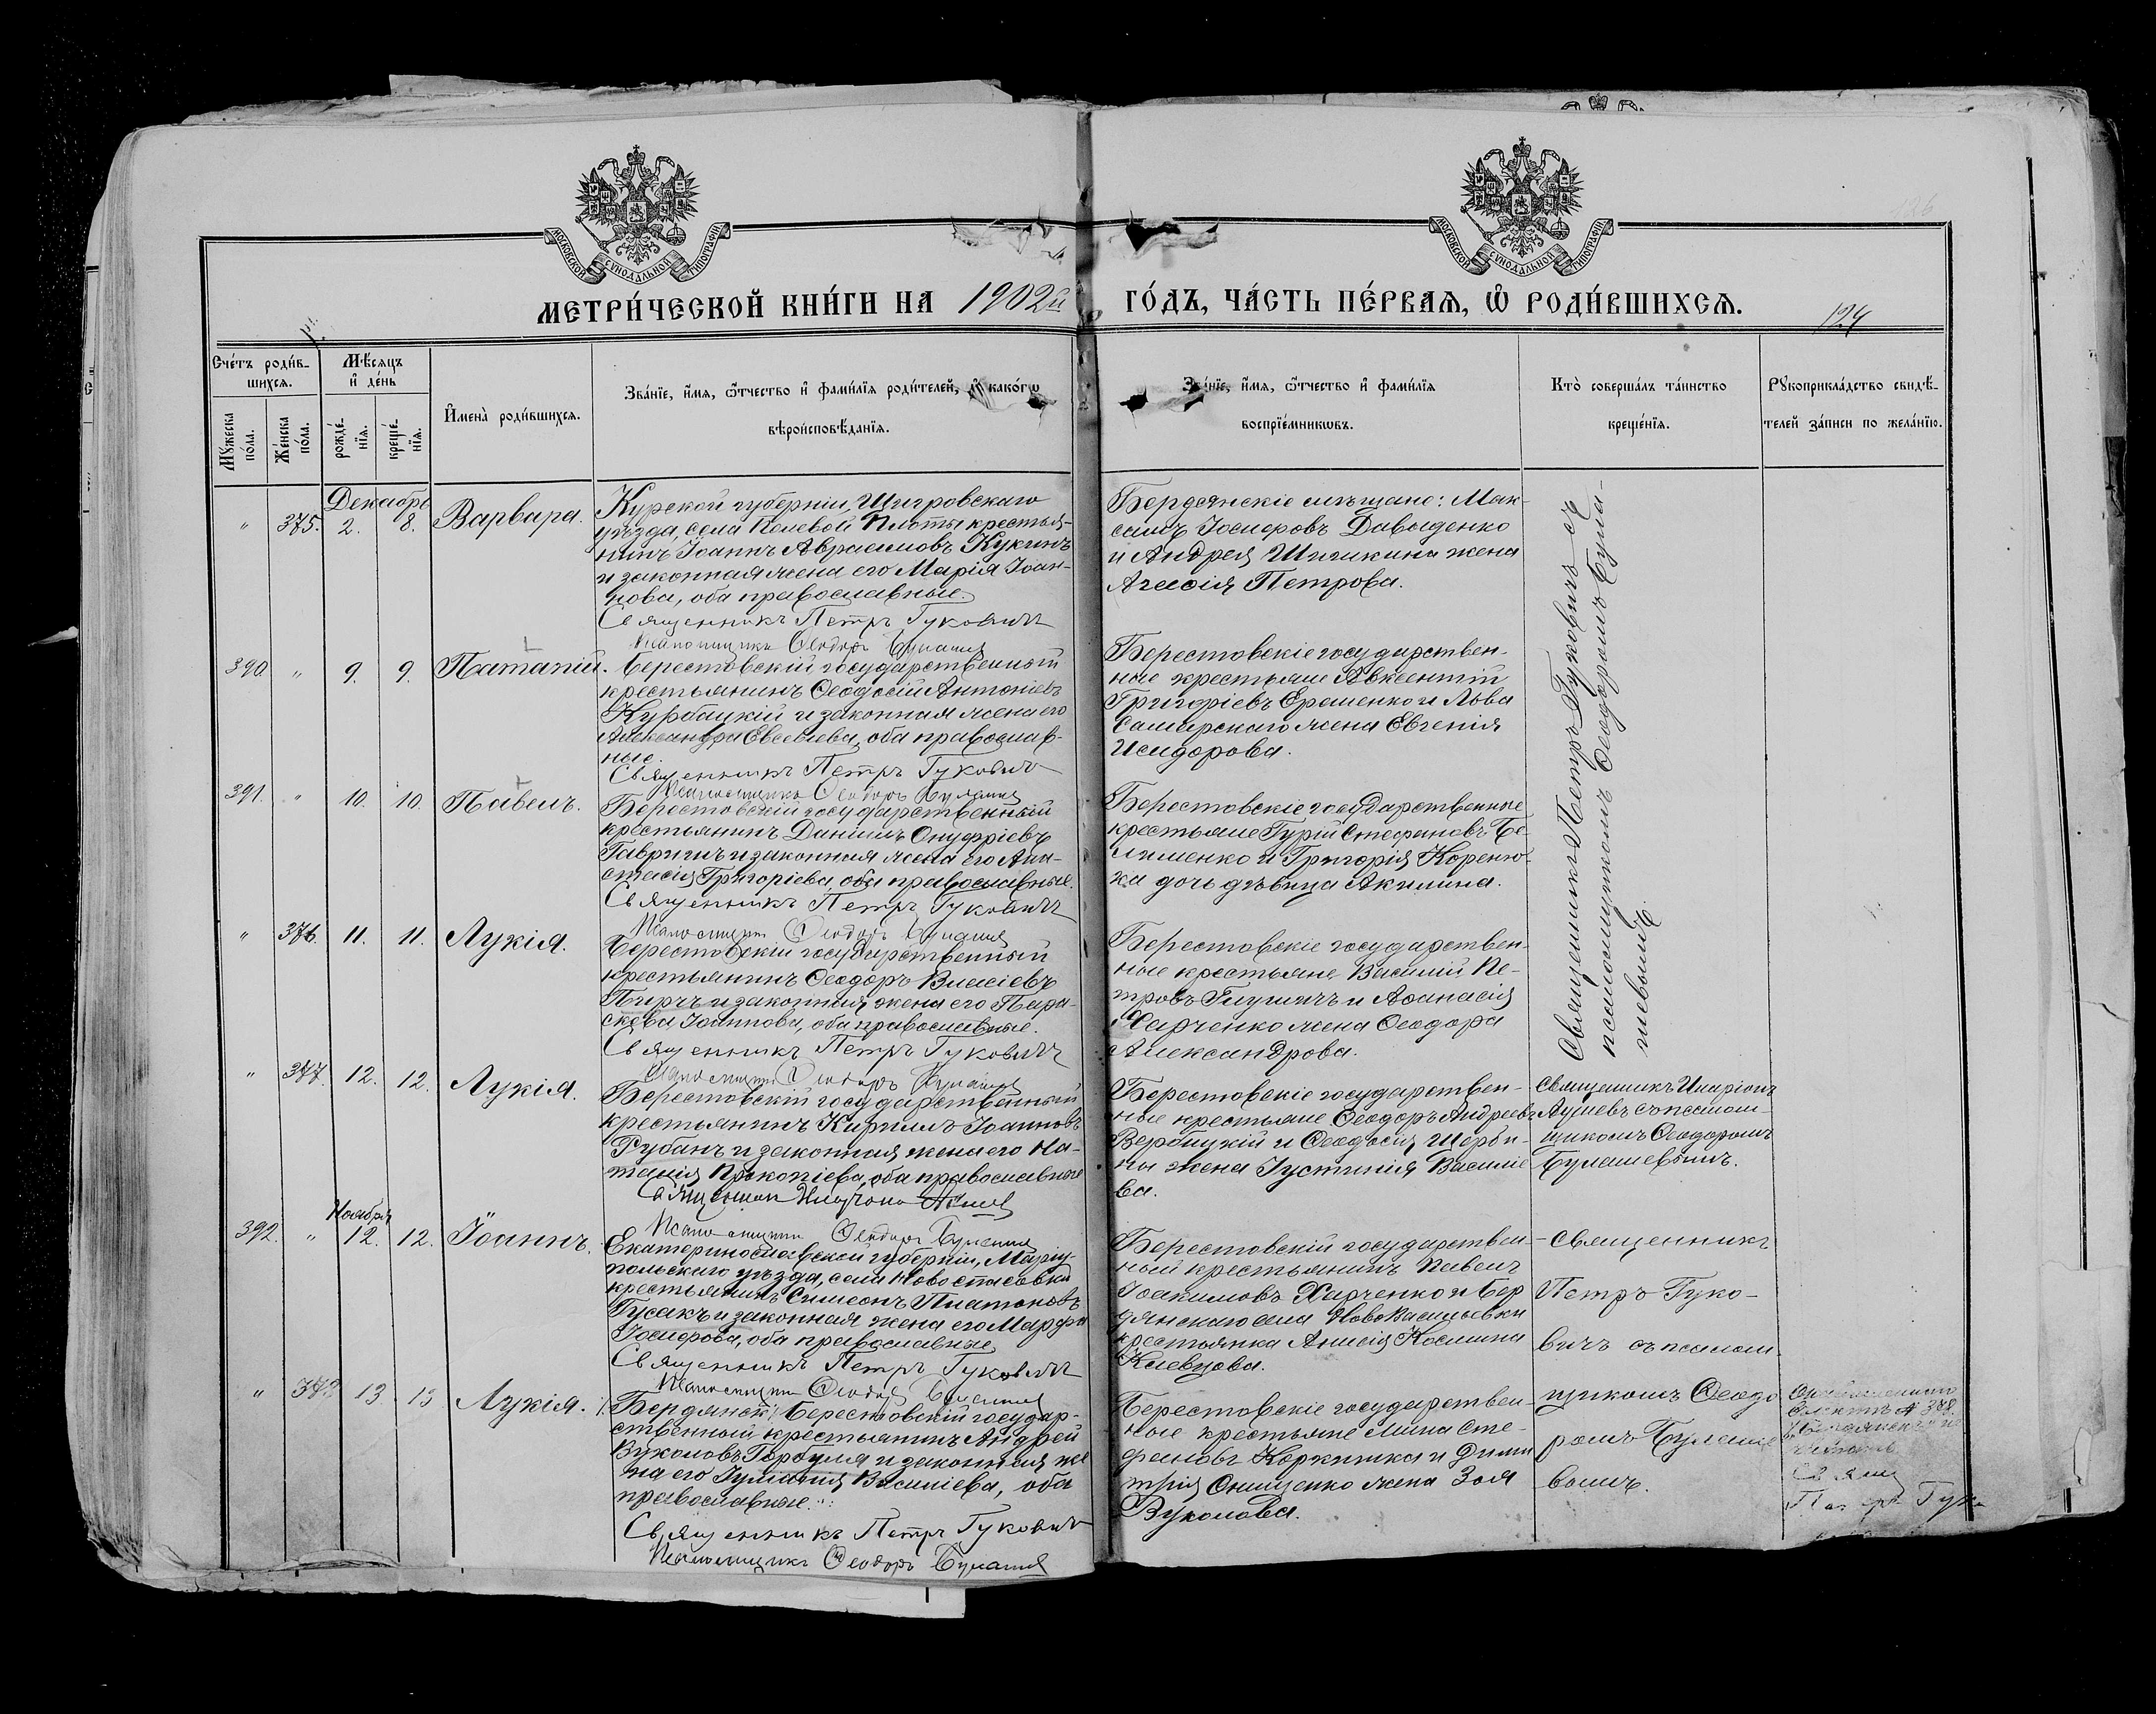 МОСКОВСКОЙ СѴНОДАЛЬНОЙ ТИПОГРАФІИ
МОСКОВСКОЙ СѴНОДАЛЬНОЙ ТИПОГРАФІИ
МЕТРИ́ЧЕСКОЙ КНИ́ГИ НА 1902й ГО́ДЪ, ЧА́СТЬ ПЕ́РВАЯ, Ѡ РОДИ́ВШИХСЯ.
124
Сче́тъ роди́в-
шихся.
Мꙋ́жеска по́ла.
Же́нска по́ла.
Мѣ́сяцъ
и҆ де́нь
рожде́-
нїя.
креще́-
нїя.
И҆мена̀ роди́вшихся.
Зва́нїе, и҆́мя, ѻ҆́тчество и҆ фами́лїя роди́телей, и҆ како́гѡ
вѣроисповѣ́данїя.
Зва́нїе, и҆́мя, ѻ҆́тчество и҆ фами́лїя
воспрїе́мникѡвъ.
Кто̀ соверша́лъ та́инство
креще́нїя.
Рꙋкоприкла́дство свидѣ́-
телей за́писи по жела́нїю.
Декабрь
" 375. 2. 8. Варвара.
Курской губерніи, Щигровскаго
уѣзда, села Полевой Плоты крестья-
нинъ Іоаннъ Авраамовъ Кукинъ
и законная жена его Марія Іоан-
нова, оба православные.
Священникъ Петръ Гуковичъ
Псаломщикъ Ѳеодоръ
Бердянскіе мѣщане: Мак-
симъ Іосифовъ Давыденко
и Андрея Шишкина жена
Агафія Петрова.
Священникъ Петръ Гуковичъ съ
псаломщикомъ Ѳеодоромъ Була-
шевымъ.
390. " 9. 9. Патапій.
Берестовскій государственный
крестьянинъ Ѳеодосій Антоніевъ
Курбацкій и законная жена его
Александра Евсевіева, оба православ-
ные.
Священникъ Петръ Гуковичъ
Псаломщикъ Ѳеодоръ
Берестовскіе государствен-
ные крестьяне Авксентій
Григоріевъ Еременко и Льва
Самарскаго жена Евгенія
Исидорова.
391. " 10. 10. Павелъ.
Берестовскій государственный
крестьянинъ Даніилъ Онуфріевъ
Гавришъ и законная жена его Ана-
стасія Григоріева, оба православные.
Священникъ Петръ Гуковичъ
Псаломщикъ Ѳеодоръ
Берестовскіе государственные
крестьяне Гурій Стефановъ Бе-
лименко и Григорія Кореню-
ка дочь дѣвица Акилина.
" 376. 11. 11. Лукія.
Берестовскій государственный
крестьянинъ Ѳеодоръ Власіевъ
Пирчъ и законная жена его Пара-
скева Іоаннова, оба православные.
Священникъ Петръ Гуковичъ
Псаломщикъ Ѳеодоръ
Берестовскіе государствен-
ные крестьяне Василій Пе-
тровъ и Аѳанасія
Харченко жена Ѳеодора
Александрова.
" 377. 12. 12. Лукія.
Берестовскій государственный
крестьянинъ Кириллъ Іоанновъ
Рубанъ и законная жена его На-
талія Прокопіева, оба православные
Священникъ Иларіонъ
Псаломщикъ Ѳеодоръ
Берестовскіе государствен-
ные крестьяне Ѳеодоръ Андреевъ
Вербицкій и Ѳеодосія Щерби-
ны жена Іустинія Василіе
ва.
Священникъ Иларіонъ
съ псалом-
щикомъ Ѳеодоромъ
Булашевымъ.
Ноября
392. " 12. 12. Іоаннъ.
Екатеринославской губерніи, Маріу-
польскаго уѣзда, села Новоспасовки
крестьянинъ Симеонъ Платоновъ
Гусакъ и законная жена его Марфа
Іосифова, оба православные.
Священникъ Петръ Гуковичъ
Псаломщикъ Ѳеодоръ
Берестовскій государствен-
ный крестьянинъ Павелъ
Іоакимовъ Харченко и Бер
дянскаго села НовоВасильевки
крестьянка Анисія Косьмина
Клевцова.
Священникъ
Петръ Гуко-
вичъ съ псалом-
щикомъ Ѳеодо
ромъ Булаше
вымъ.
" 378 13. 13 Лукія.
Бердянск. Берестовскій государ-
ственный крестьянинъ Андрей
Вуколовъ Горбуля и законная же
на его Іуліанія Василіева, оба
православные.
Священникъ Петръ Гуковичъ
Псаломщикъ Ѳеодоръ
Берестовскіе государствен-
ные крестьяне Мина Сте-
фановъ Коркишка и Дими
трія Онищенко жена Зоя
Вуколова.
№ 378.
Свящ
Петръ Гуко